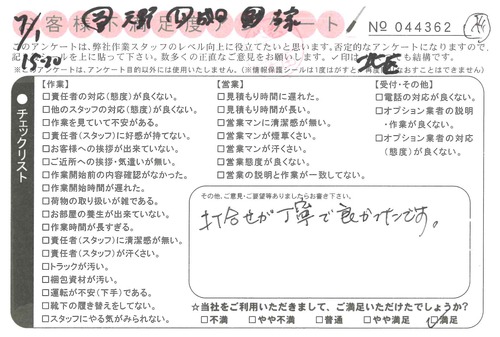 7/1
15:30
お客様不満足度アンケート
№ 044362
このアンケートは、弊社作業スタッフのレベル向上に役立てたいと思います。否定的なアンケートになりますので、
チェックリスト
【作業】
□責任者の対応(態度)が良くない。
□他のスタッフの対応(態度)が良くない。
□作業を見ていて不安がある。
□責任者(スタッフ)に好感が持てない。
□お客様への挨拶が出来ていない。
□ご近所への挨拶・気遣いが無い。
□作業開始前の内容確認がなかった。
□作業開始時間が遅れた。
□荷物の取り扱いが雑である。
□お部屋の養生が出来ていない。
□作業時間が長すぎる。
□責任者(スタッフ)に清潔感が無い。
□責任者(スタッフ)が汗くさい。
□トラックが汚い。
□梱包資材が汚い。
□運転が不安(下手)である。
□靴下の履き替えをしてない。
□スタッフにやる気がみられない。
【営業】
□見積もり時間に遅れた。
□見積もり時間が長い。
□営業マンに清潔感が無い。
□営業マンが煙草くさい。
□営業マンが汗くさい。
□営業態度が良くない。
□営業の説明と作業が一致してない。
【受付・その他】
□電話の対応が良くない。
□オプション業者の説明
・作業が良くない。
□オプション業者の対応
(態度)が良くない。
その他、ご意見・ご要望等ありましたらお書き下さい。
打合せが丁寧で良かったです。
☆当社をご利用いただきまして、ご満足いただけたでしょうか?
□不満 □やや不満 □普通 □やや満足 □満足